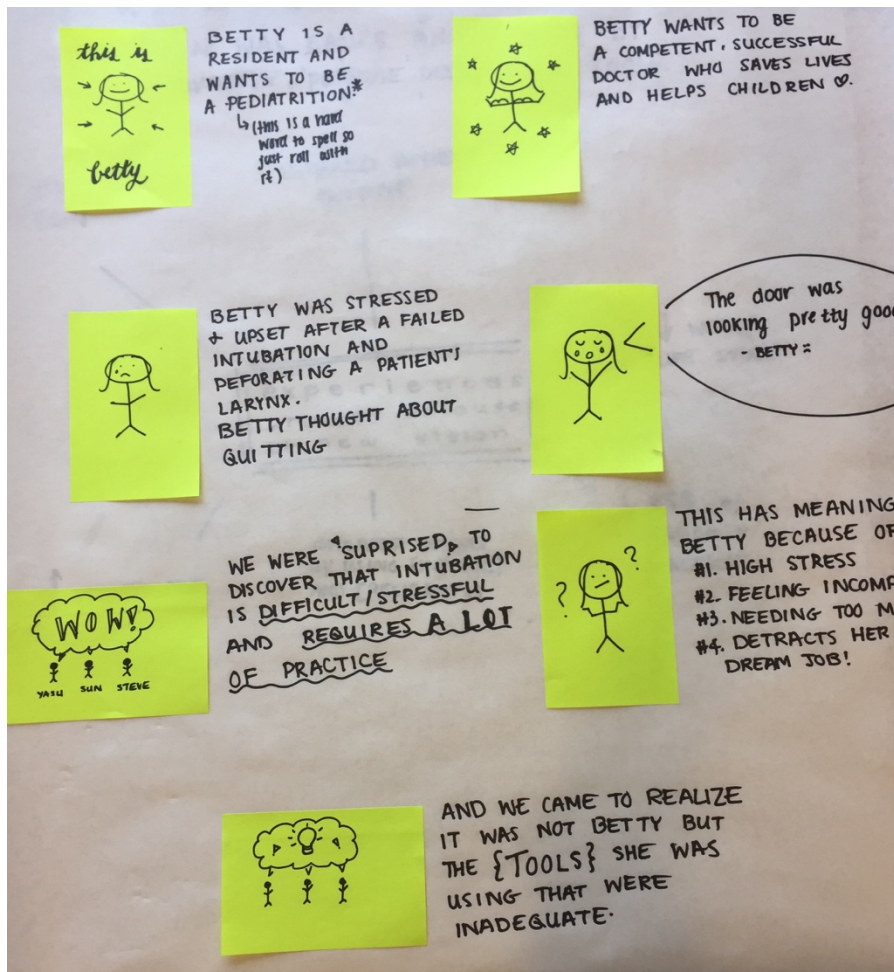 this is
betty
BETTY IS A
RESIDENT AND
WANTS TO BE
A PEDIATRITION.*
↳(this is a hard
word to spell so
just roll with
it)
BETTY WANTS TO BE
A COMPETENT, SUCCESSFUL
DOCTOR WHO SAVES LIVES
AND HELPS CHILDREN ♡.
BETTY WAS STRESSED
+ UPSET AFTER A FAILED
INTUBATION AND
PEFORATING A PATIENT'S
LARYNX.
BETTY THOUGHT ABOUT
QUITTING
The door was
looking pretty good
- BETTY
WOW!
YASU SUN STEVE
WE WERE "SUPRISED" TO
DISCOVER THAT INTUBATION
IS DIFFICULT/STRESSFUL
AND REQUIRES A LOT
OF PRACTICE
? ?
THIS HAS MEANING
BETTY BECAUSE OF
#1. HIGH STRESS
#2. FEELING INCOMP
#3. NEEDING TOO M
#4. DETRACTS HER
DREAM JOB!
AND WE CAME TO REALIZE
IT WAS NOT BETTY BUT
THE {TOOLS} SHE WAS
USING THAT WERE
INADEQUATE.